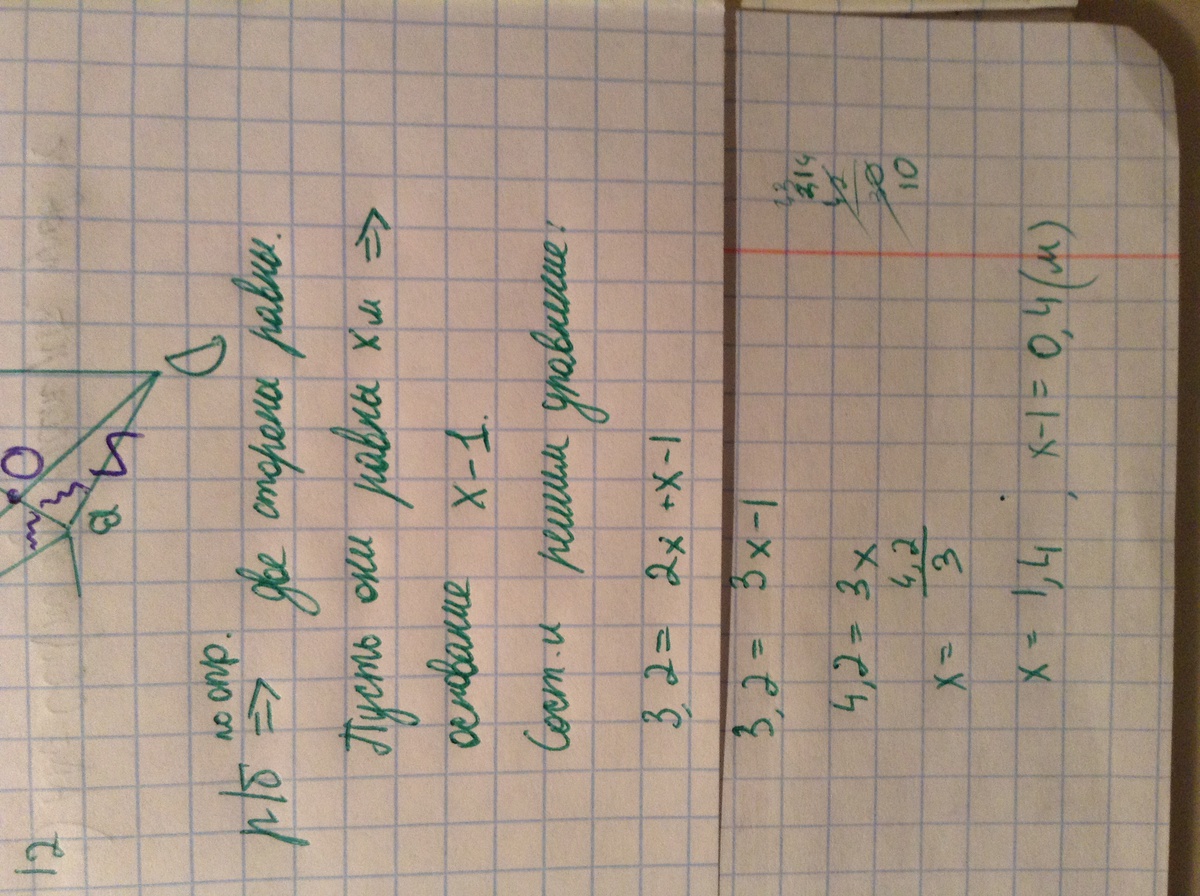 12
O
a
D
по опр.
р/б => две стороны равны.
Пусть они равны х м =>
основание х-1.
Сост. и решим уравнение:
3,2 = 2x+x-1
3,2 = 3x-1
4,2 = 3x
x = 4,2/3
x = 1,4, x-1 = 0,4 (м)
10